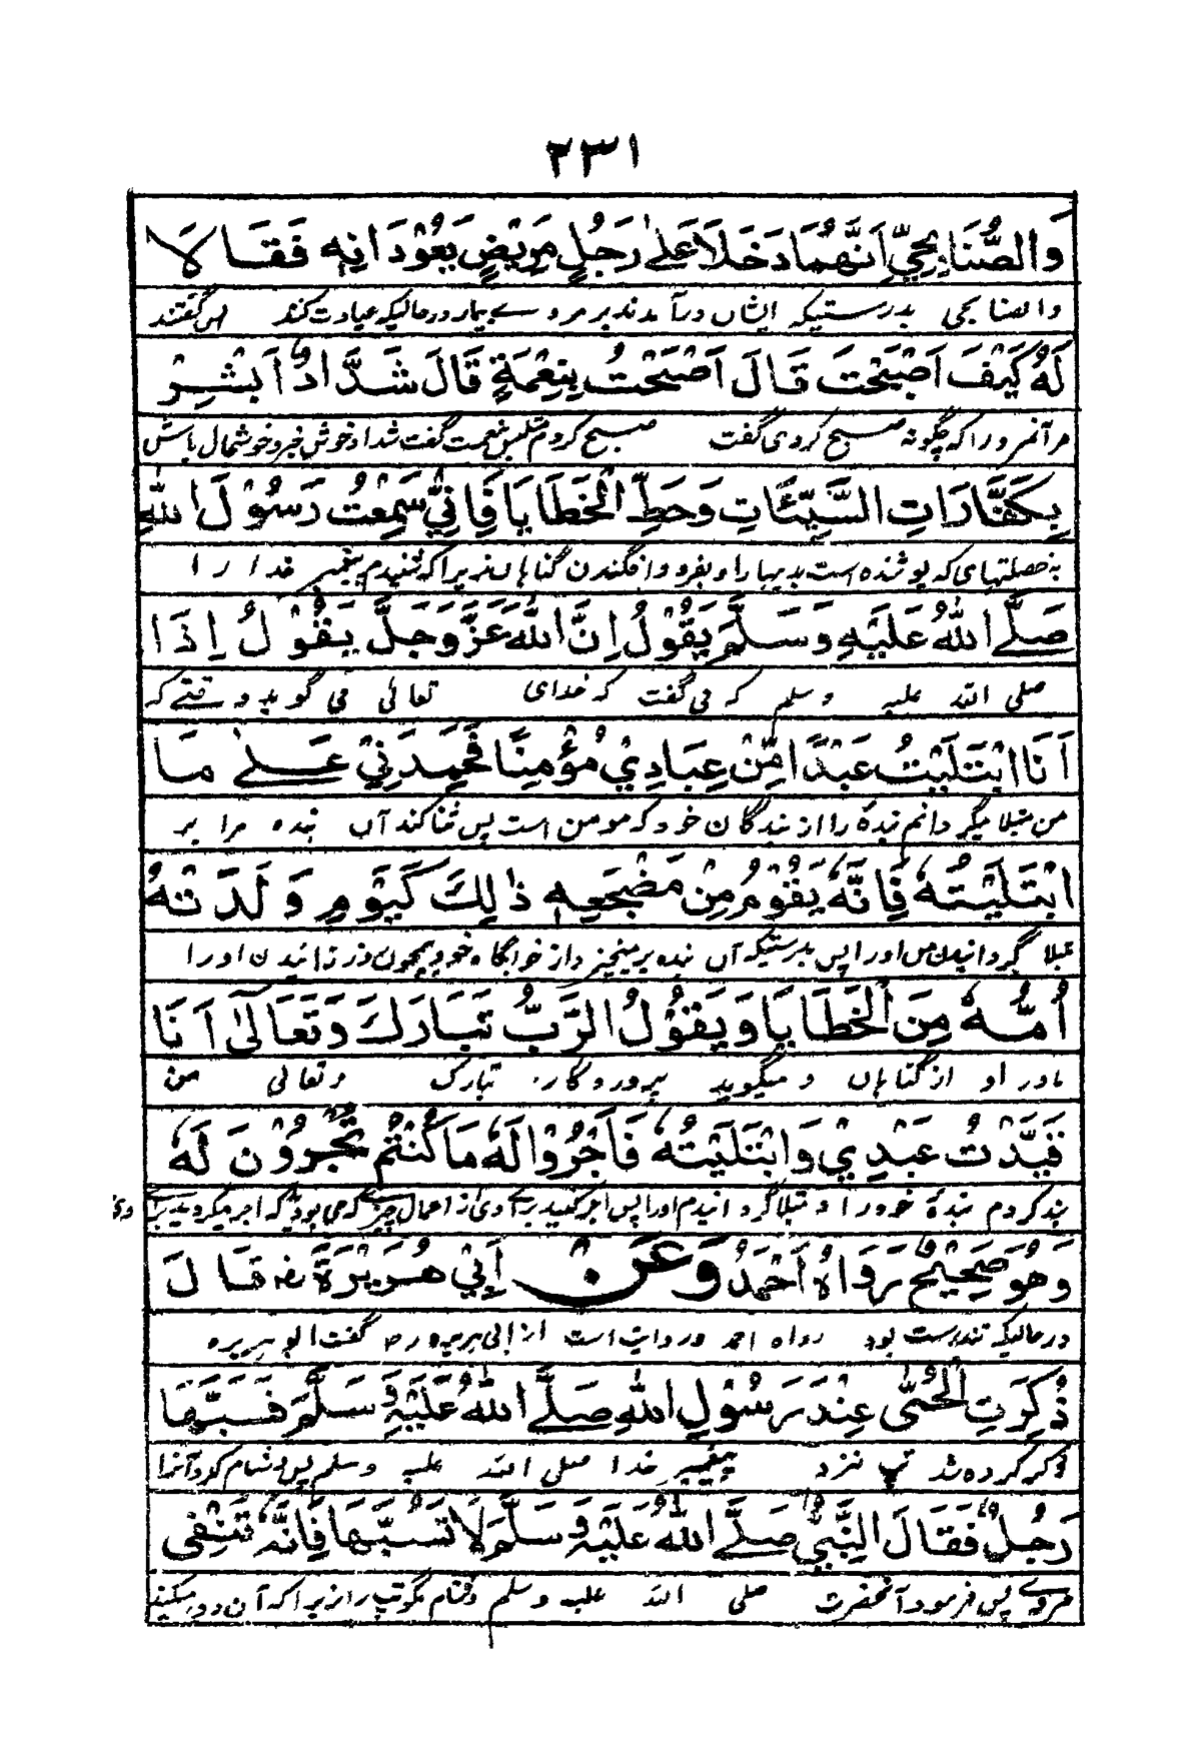 ۲۳۱
وَالصُّنَابِحِيِّ اَنَّهُمَا دَخَلَا عَلٰى رَجُلٍ مَرِيْضٍ يَعُوْدَانِهٖ فَقَالَا
والصنابحی بدرستیکہ ایشان درآمدند بر مردے بیمار درحالیکہ عیادت کنند پس گفتند
لَهُ كَيْفَ اَصْبَحْتَ قَالَ اَصْبَحْتُ بِنِعْمَةٍ قَالَ شَدَّادٌ اَبْشِرْ
مر آنمرد را کہ چگونہ صبح کردی گفت صبح کردم بنعمت گفت شداد خوش خبر و خوشحال باش
بِكَفَّارَاتِ السَّيِّئَاتِ وَحَطِّ الْخَطَايَا فَاِنِّيْ سَمِعْتُ رَسُوْلَ اللهِ
بخصلتہای کہ پوشندہ است بدیہا را و بفرود افگندن گناہان زیرا کہ شنیدم پیغمبر خدا را
صَلَّے اللهُ عَلَيْهِ وَسَلَّمَ يَقُوْلُ اِنَّ اللهَ عَزَّ وَجَلَّ يَقُوْلُ اِذَا
صلی اللہ علیہ وسلم کہ می گفت کہ خدای تعالی می گوید وقتے کہ
اَنَا ابْتَلَيْتُ عَبْدًا مِّنْ عِبَادِيْ مُؤْمِنًا فَحَمِدَنِيْ عَلٰے مَا
من مبتلا میگردانم بندۂ را از بندگان خود کہ مومن است پس ثنا کند آں بندہ مرا بر
ابْتَلَيْتُهٗ فَاِنَّهٗ يَقُوْمُ مِنْ مَضْجَعِهٖ ذٰلِكَ كَيَوْمِ وَلَدَتْهُ
مبتلا گردانیدن من اورا پس بدرستیکہ آں بندہ برمیخیزد از خوابگاہ خود ہمچون روز زائیدن اورا
اُمُّهٗ مِنَ الْخَطَايَا وَيَقُوْلُ الرَّبُّ تَبَارَكَ وَتَعَالٰى اَنَا
مادر او از گناہاں و میگوید پروردگار تبارک وتعالی من
قَيَّدْتُ عَبْدِيْ وَابْتَلَيْتُهٗ فَاَجْرُوْا لَهٗ مَا كُنْتُمْ تُجْرُوْنَ لَهٗ
بند کردم بندۂ خود را و مبتلا گردانیدم اورا پس اجر کنید برائے وی از اعمال چیزے کہ می بودید کہ اجر میکردید برائے وی
وَهُوَ صَحِيْحٌ رَوَاهُ اَحْمَدُ وَعَنْ اَبِيْ هُرَيْرَةَ رضه قَالَ
درحالیکہ تندرست بود رواہ احمد و روایت است از ابی ہریرہ رضہ گفت ابو ہریرہ
ذُكِرَتِ الْحُمّٰى عِنْدَ رَسُوْلِ اللهِ صَلَّے اللهُ عَلَيْهِ وَسَلَّمَ فَسَبَّهَا
ذکر کردہ شد تپ نزد پیغمبر خدا صلی اللہ علیہ وسلم پس دشنام کرد آنرا
رَجُلٌ فَقَالَ النَّبِيُّ صَلَّے اللهُ عَلَيْهِ وَسَلَّمَ لَا تَسُبَّهَا فَاِنَّهَا تَنْفِى
مردے پس فرمود آنحضرت صلی اللہ علیہ وسلم دشنام مگو تپ را زیرا کہ آن دور میکند